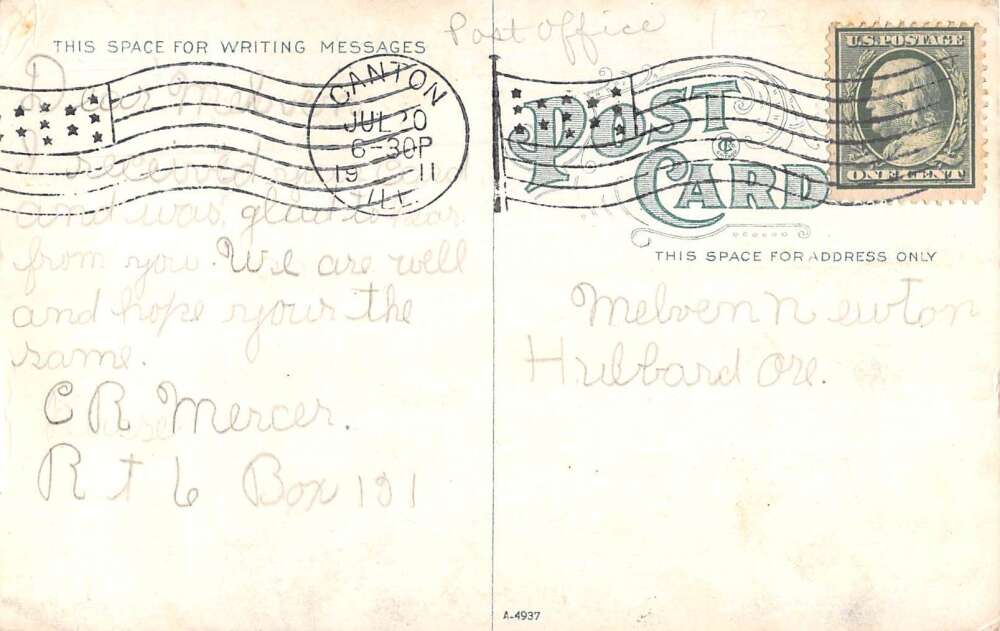 THIS SPACE FOR WRITING MESSAGES
Dear Melven
I received your card
and was glad to hear
from you. We are well
and hope yours the
same.
C R Mercer.
R t 6 Box 191
CANTON
JUL 20
6-30P
19 11
ILL.
Post office
U.S. POSTAGE
ONE CENT
POST
CARD
THIS SPACE FOR ADDRESS ONLY
Melven Newton
Hubbard Ore.
A-4937